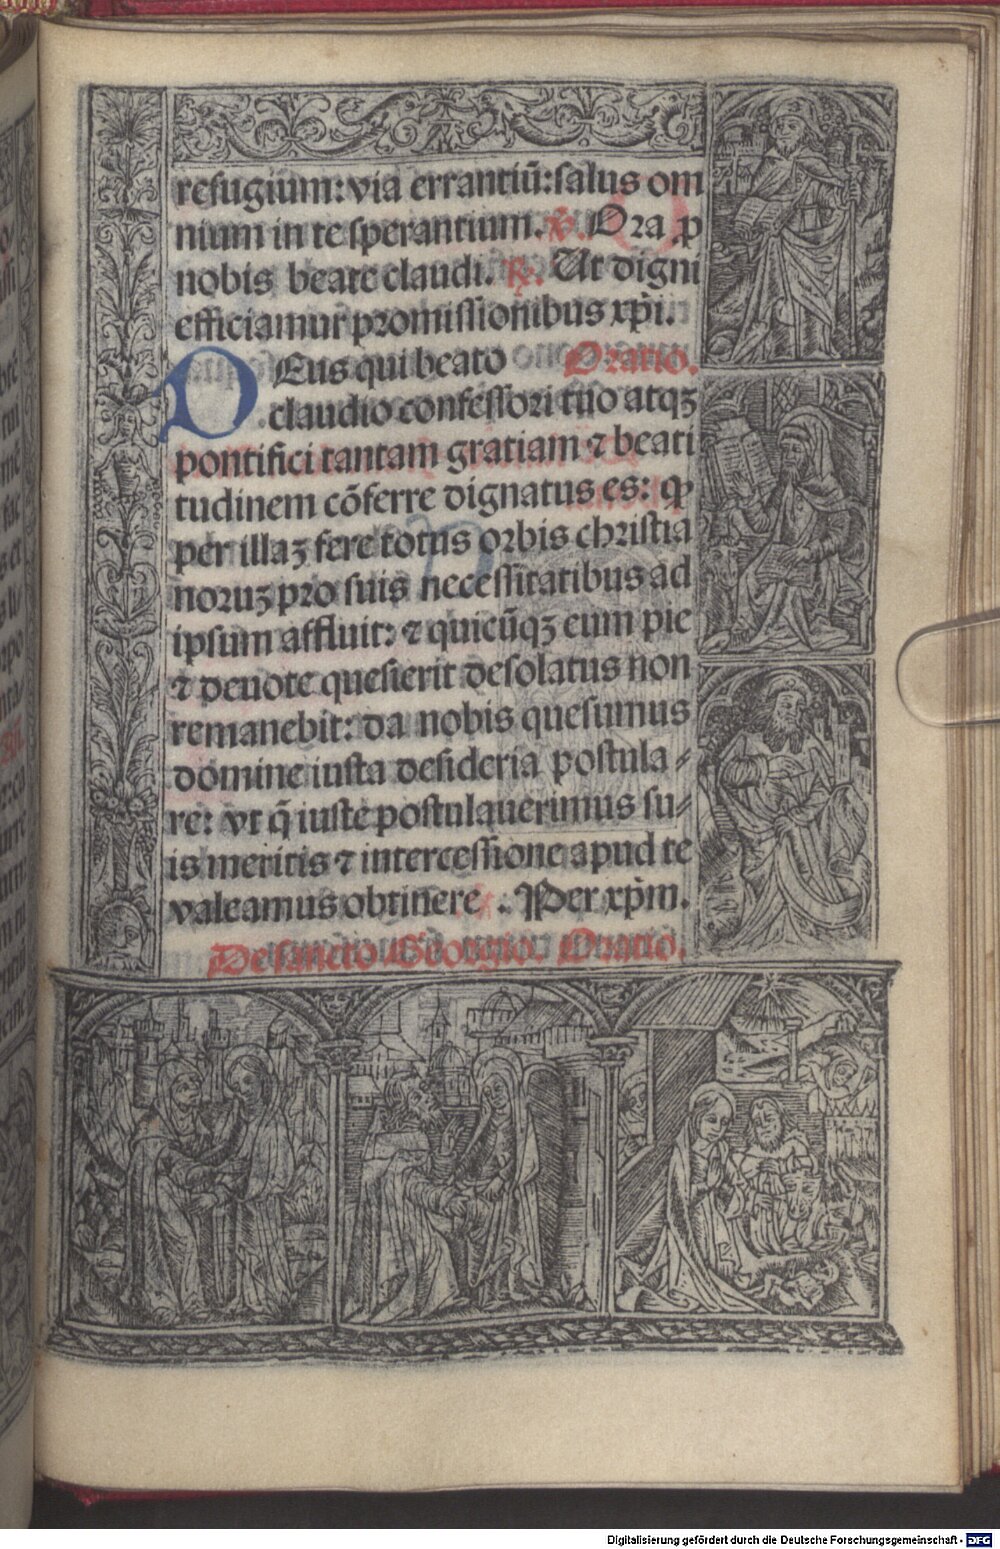 refugium: via errantiū: salus om
nium in te sperantium. ℣. Ora ꝓ
nobis beate claudi. ℟. Ut digni
efficiamur promissionibus xp̄i.
DEus qui beato Oratio.
claudio confessori tuo atqꝫ
pontifici tantam gratiam ⁊ beati
tudinem cōferre dignatus es: ꝙ
per illaꝫ fere totus orbis christia
noruꝫ pro suis necessitatibus ad
ipsum affluit: ⁊ quicūqꝫ eum pie
⁊ deuote quesierit desolatus non
remanebit: da nobis quesumus
domine iusta desideria postula⸗
re: vt q̄ iuste postulauerimus su⸗
is meritis ⁊ intercessione apud te
valeamus obtinere. Per xp̄m.
De sancto Georgio. Oratio.
Digitalisierung gefördert durch die Deutsche Forschungsgemeinschaft - DFG